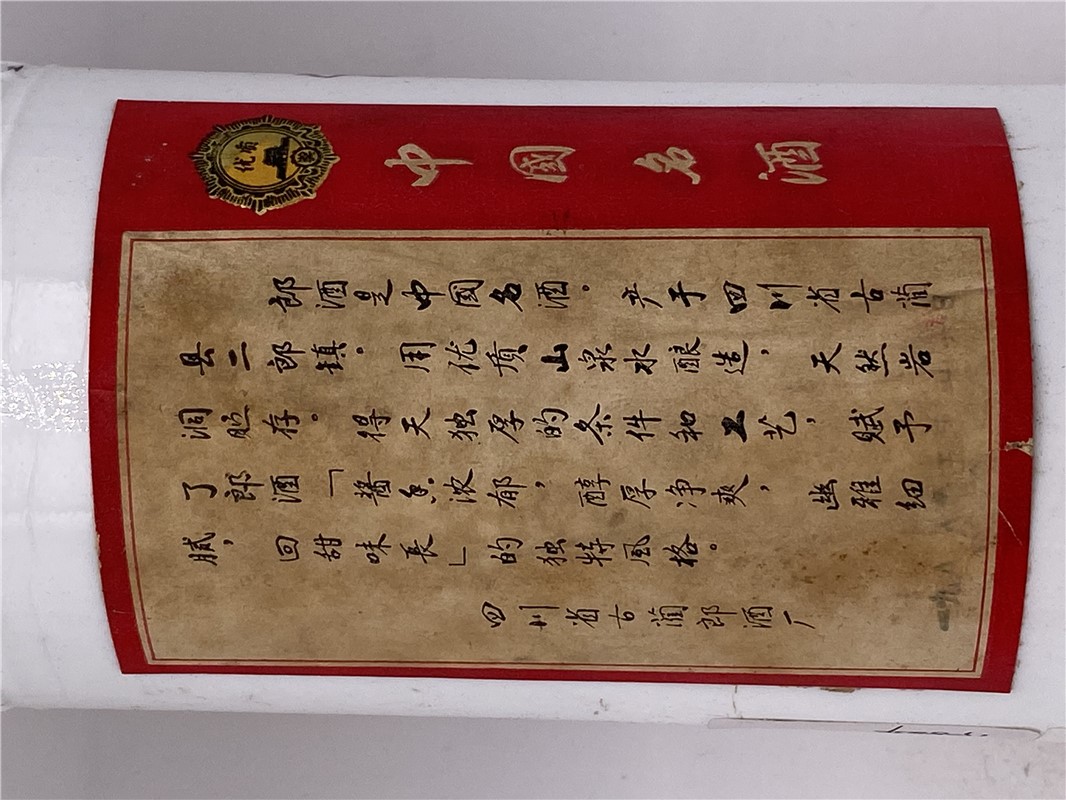 优质
中國名酒
郎酒是中國名酒。产于四川省古蔺
县二郎镇。用优质山泉水酿造，天然岩
洞贮存。得天独厚的条件和工艺，赋予
了郎酒「醬香浓郁，醇厚净爽，幽雅细
腻，回甜味長」的独特風格。
四川省古蔺郎酒厂